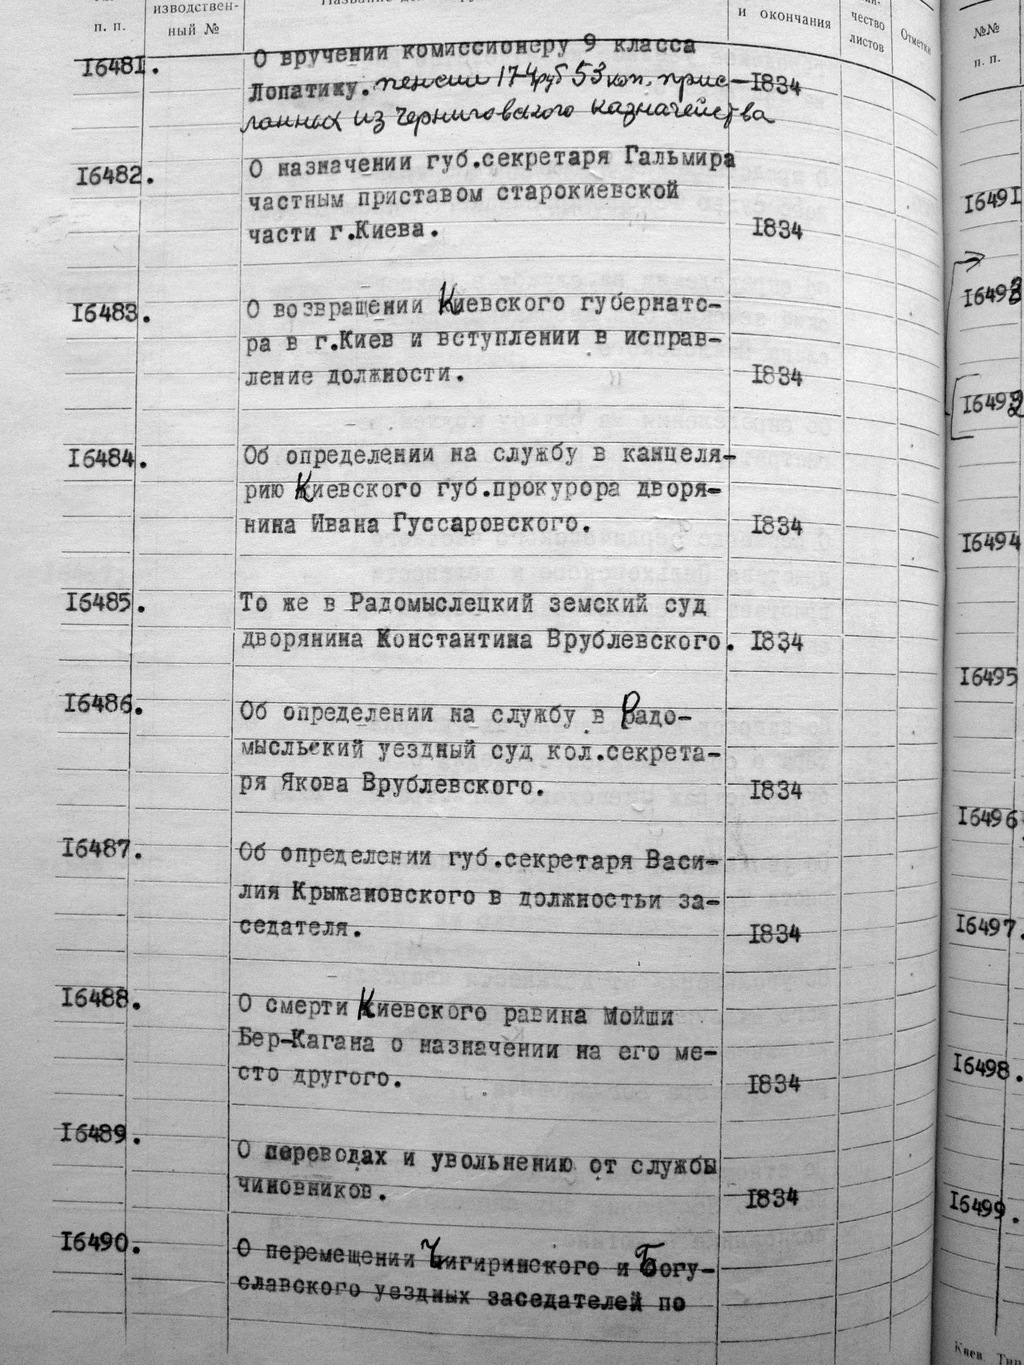 п. п.
изводствен-
ный №
и окончания
чество
листов
Отметки
16481.
О вручении комиссионеру 9 класса
Лопатину. пенсии 174 руб 53 коп. прис-
ланных из Черниговского казначейства
1834
16482.
О назначении губ.секретаря Гальмира
частным приставом старокиевской
части г.Киева.
1834
16483.
О возвращении Киевского губернато-
ра в г.Киев и вступлении в исправ-
ление должности.
1834
16484.
Об определении на службу в канцеля-
рию Киевского губ.прокурора дворя-
нина Ивана Гуссаровского.
1834
16485.
То же в Радомыслецкий земский суд
дворянина Константина Врублевского.
1834
16486.
Об определении на службу в Радо-
мысльский уездный суд кол.секрета-
ря Якова Врублевского.
1834
16487.
Об определении губ.секретаря Васи-
лия Крыжановского в должностьи за-
седателя.
1834
16488.
О смерти Киевского равина Мойши
Бер-Кагана о назначении на его ме-
сто другого.
1834
16489.
О переводах и увольнению от службы
чиновников.
1834
16490.
О перемещении Чигиринского и Богу-
славского уездных заседателей по
№№
п. п.
16491
16494
16495
16496
16497.
16498.
16499.
Киев